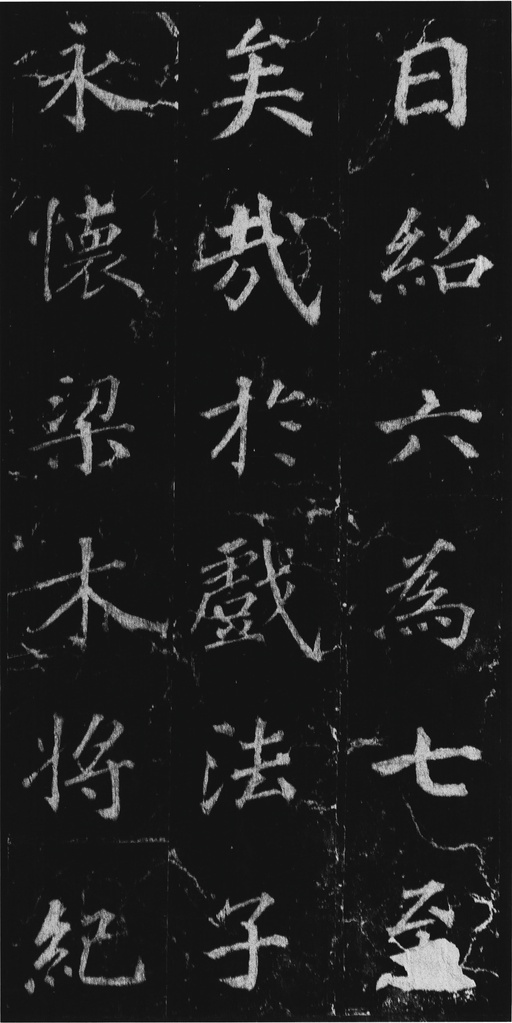 曰紹六為七至
矣哉於戲法子
永懷梁木將紀